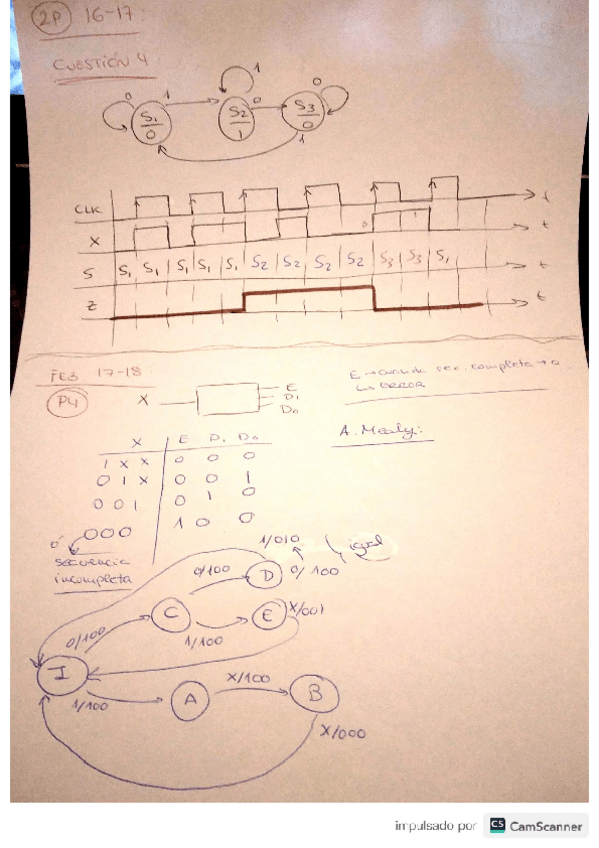 2P 16-17:
CUESTIÓN 4
0 1 1 0 0
S1/0 S2/1 S3/0
1
CLK t
X 0 1 t
S S1 S1 S1 S1 S1 S2 S2 S2 S2 S3 S3 S1 t
Z t
FE3 17-18
P4 X E D1 D0
ERROR
A. Mealy:
X E D1 D0
1 X X 0 0 0
0 1 X 0 0 1
0 0 1 0 1 0
ó 000 1 0 0
secuencia
incompleta
1/010 igual
0/100 D 0/100
C E X/001
0/100 1/100
I
1/100 A X/100 B
X/000
impulsado por CS CamScanner